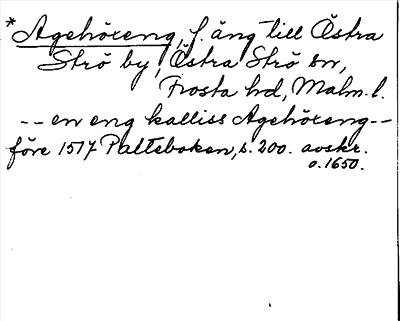 *Agehöreng, f. äng till Östra
Strö by, Östra Strö sn,
Frosta hd, Malm. l.
-- en eng kalliss Agehöreng --
före 1517 Palteboken, s. 200. avskr.
o. 1650.